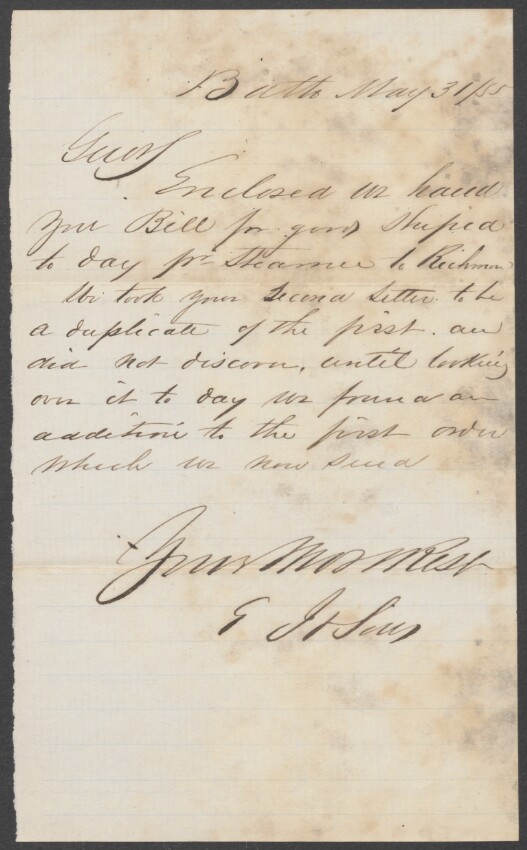 Bath May 31/55
Gents
Enclosed we hand
you Bill for goods Shiped
to day pr Steamer to Richmon
We took your Second Letter to be
a duplicate of the first. an
did not discover, until looking
over it to day we found an
addition to the first order
which we now send
Yours Most Resp
G J & Sons